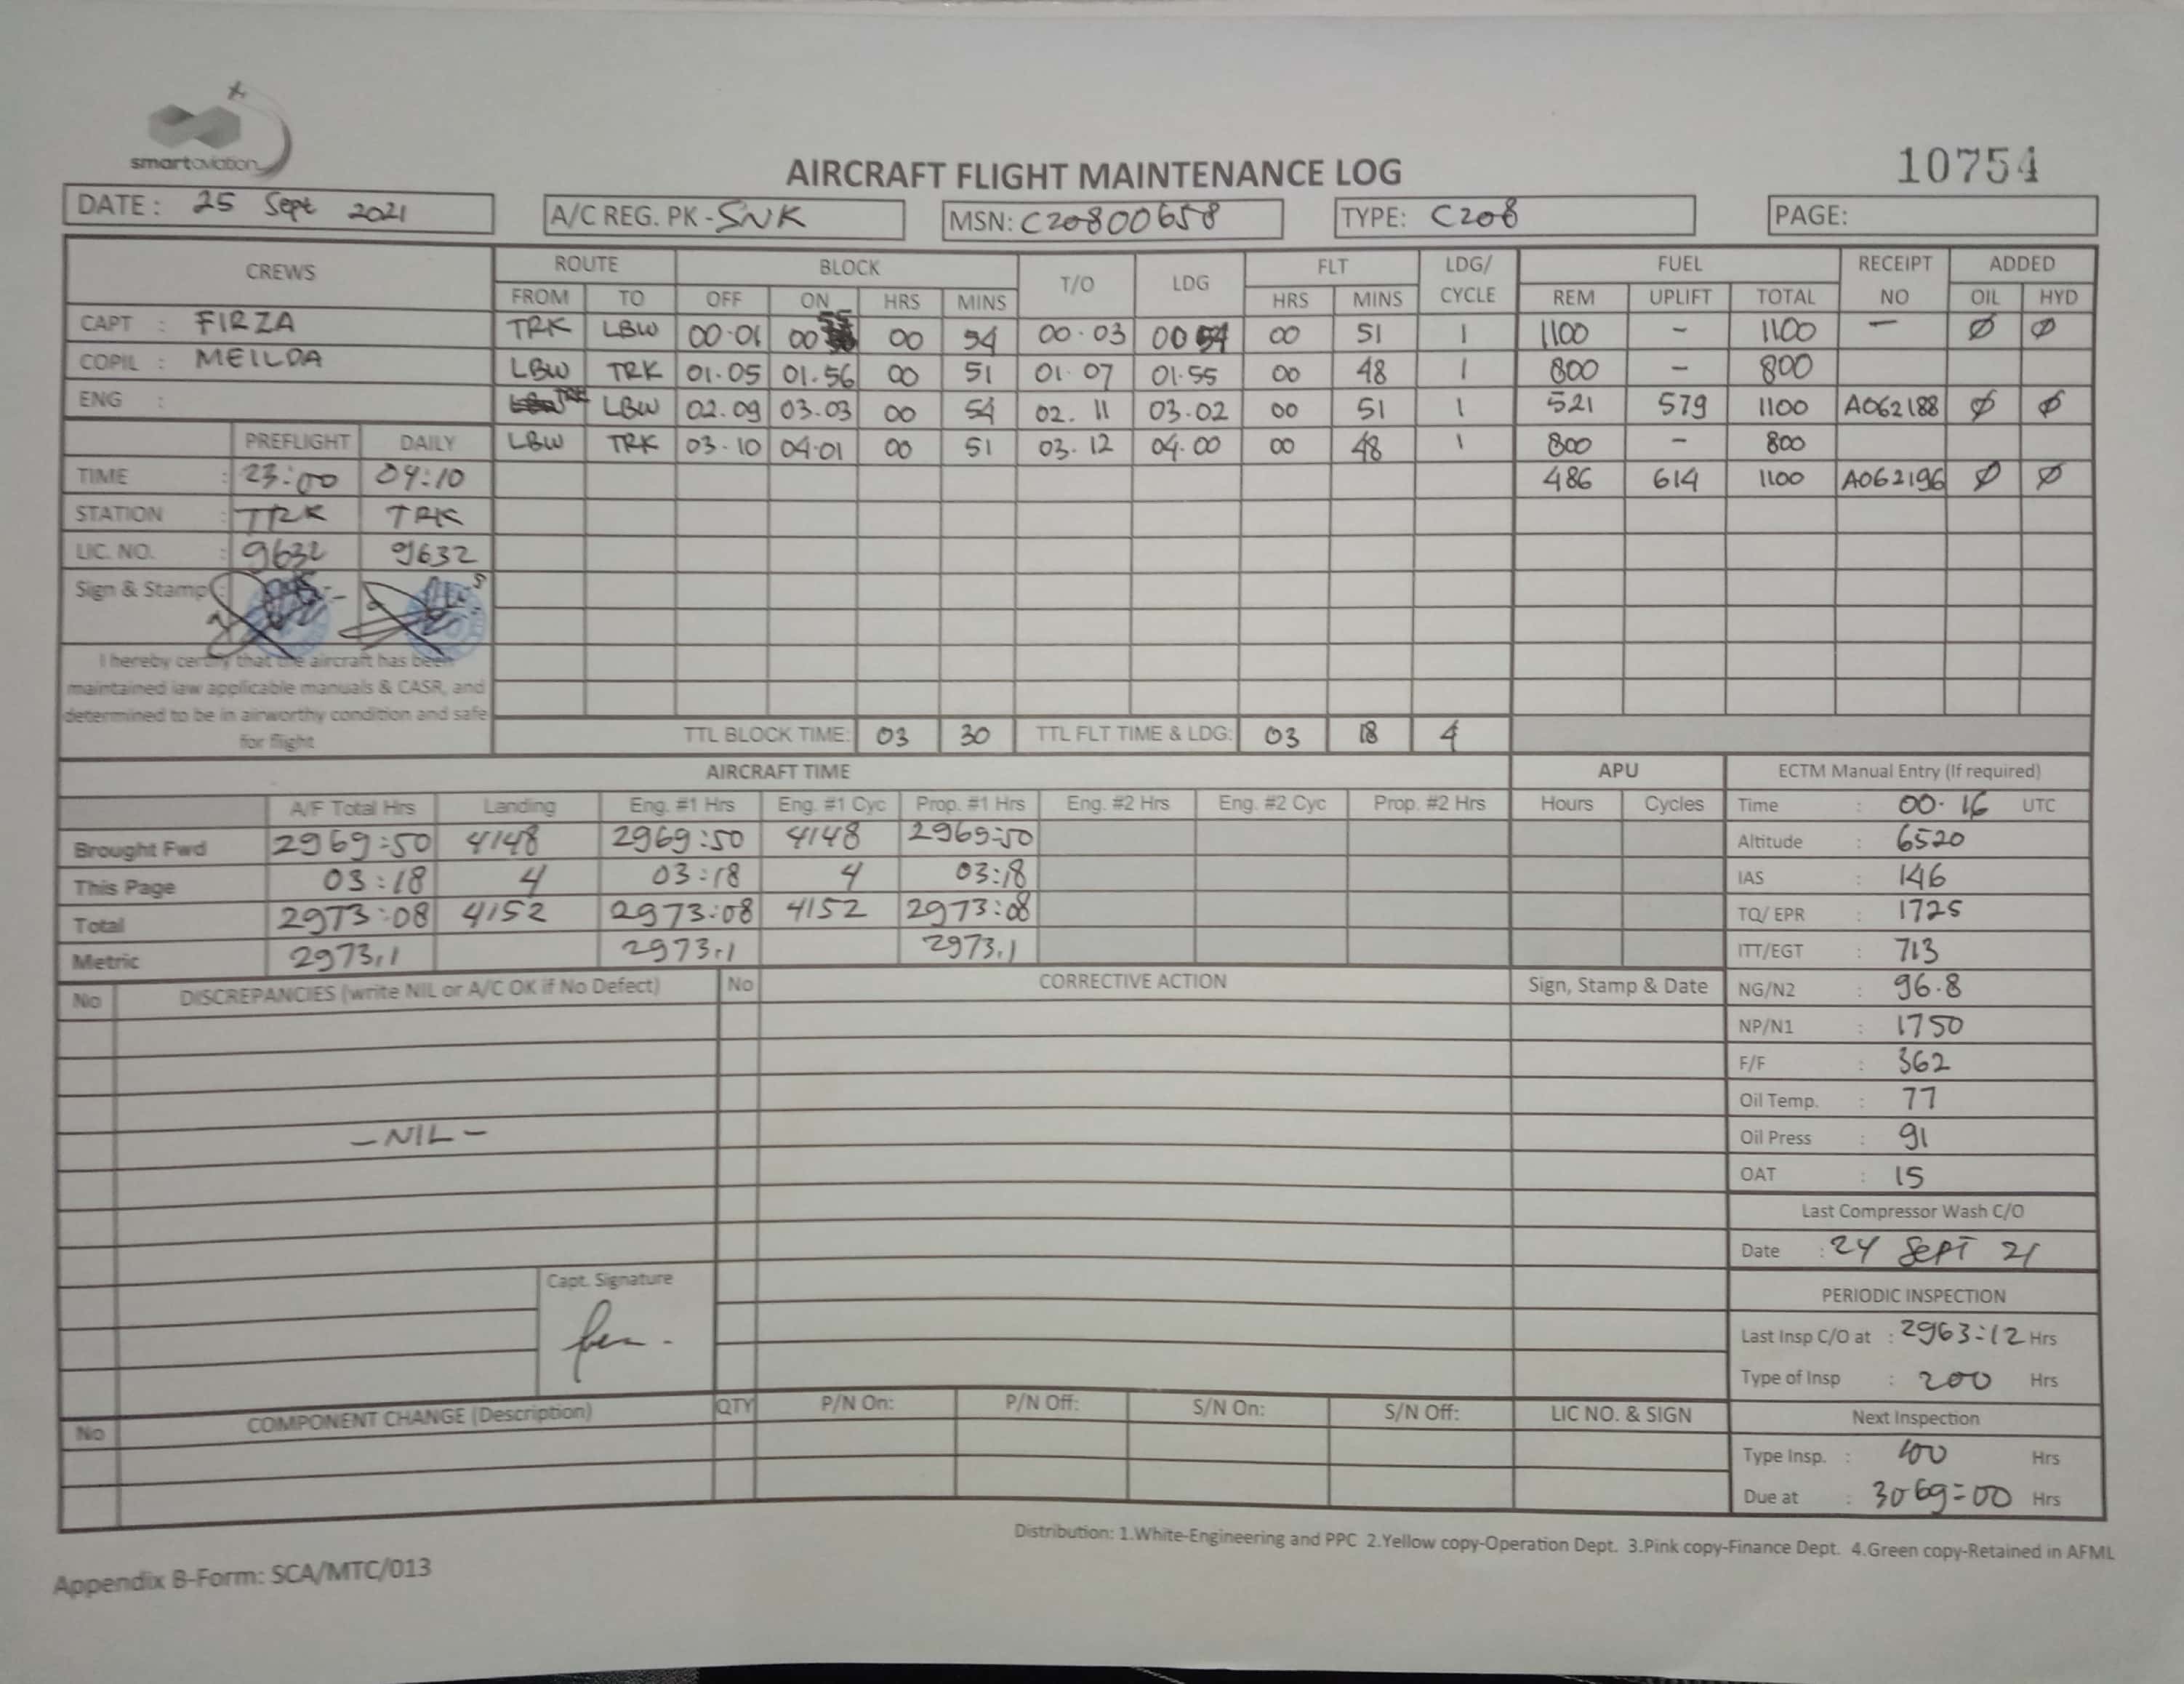 smartaviation
AIRCRAFT FLIGHT MAINTENANCE LOG
10754
DATE: 25 Sept 2021 A/C REG. PK - SNK MSN: C20800658 TYPE: C208 PAGE:
CREWS ROUTE BLOCK T/O LDG FLT LDG/ CYCLE FUEL RECEIPT NO ADDED
FROM TO OFF ON HRS MINS HRS MINS REM UPLIFT TOTAL OIL HYD
CAPT : FIRZA
COPIL : MEILDA
ENG :
TRK LBW 00.01 00 55 00 54 00.03 00 54 00 51 1 1100 - 1100 - Ø Ø
LBW TRK 01.05 01.56 00 51 01.07 01.55 00 48 1 800 - 800
TRK LBW 02.09 03.03 00 54 02.11 03.02 00 51 1 521 579 1100 A062188 Ø Ø
LBW TRK 03.10 04.01 00 51 03.12 04.00 00 48 1 800 - 800
486 614 1100 A062196 Ø Ø
PREFLIGHT DAILY
TIME : 23:00 04:10
STATION : TRK TRK
LIC. NO. : 9632 9632
Sign & Stamp
I hereby certify that the aircraft has been
maintained iaw applicable manuals & CASR, and
determined to be in airworthy condition and safe
for flight
TTL BLOCK TIME: 03 30 TTL FLT TIME & LDG: 03 18 4
AIRCRAFT TIME APU
A/F Total Hrs Landing Eng. #1 Hrs Eng. #1 Cyc Prop. #1 Hrs Eng. #2 Hrs Eng. #2 Cyc Prop. #2 Hrs Hours Cycles
Brought Fwd 2969:50 4148 2969:50 4148 2969:50
This Page 03:18 4 03:18 4 03:18
Total 2973:08 4152 2973:08 4152 2973:08
Metric 2973,1 2973,1 2973,1
ECTM Manual Entry (If required)
Time : 00.16 UTC
Altitude : 6520
IAS : 146
TQ/ EPR : 1725
ITT/EGT : 713
NG/N2 : 96.8
NP/N1 : 1750
F/F : 362
Oil Temp. : 77
Oil Press : 91
OAT : 15
Last Compressor Wash C/O
Date : 24 Sept 21
PERIODIC INSPECTION
Last Insp C/O at : 2963:12 Hrs
Type of Insp : 200 Hrs
Next Inspection
Type Insp. : 100 Hrs
Due at : 3069:00 Hrs
No DISCREPANCIES (write NIL or A/C OK if No Defect) No CORRECTIVE ACTION Sign, Stamp & Date
- NIL -
Capt. Signature
No COMPONENT CHANGE (Description) QTY P/N On: P/N Off: S/N On: S/N Off: LIC NO. & SIGN
Distribution: 1.White-Engineering and PPC 2.Yellow copy-Operation Dept. 3.Pink copy-Finance Dept. 4.Green copy-Retained in AFML
Appendix B-Form: SCA/MTC/013